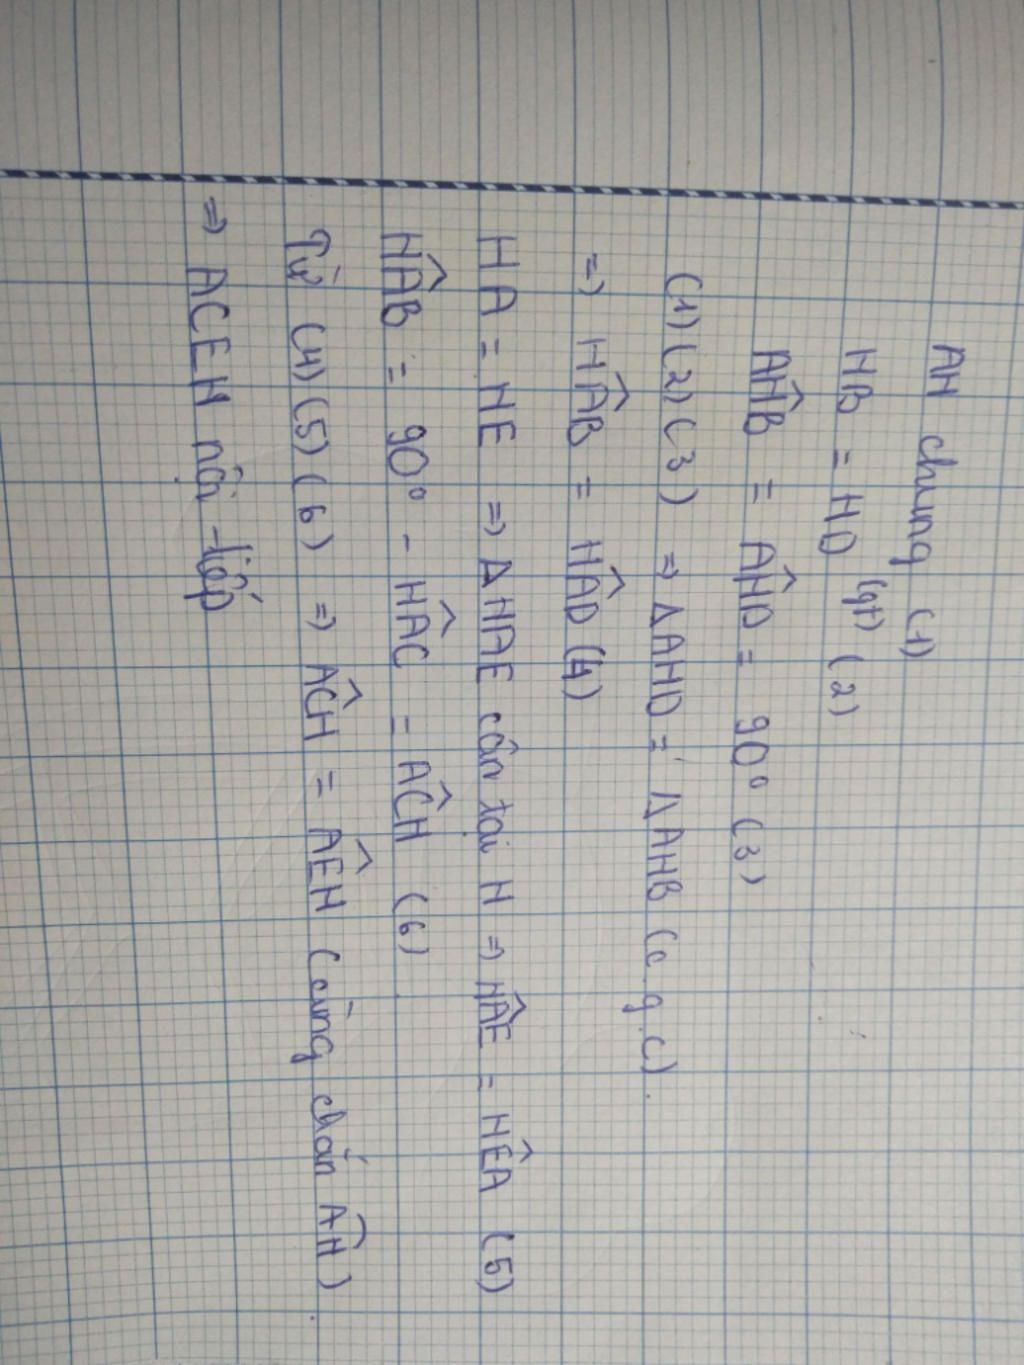 AH chung (1)
HB = HD (gt) (2)
AĤB = AĤD = 90° (3)
(1) (2) (3) => ΔAHD = ΔAHB (c.g.c).
=> HÂB = HÂD (4)
HA = HE => ΔHAE cân tại H => HÂE = HÊA (5)
HÂB = 90° - HÂC = AĈH (6)
Từ (4) (5) (6) => AĈH = AÊH (cùng chắn AH)
=> ACEH nội tiếp